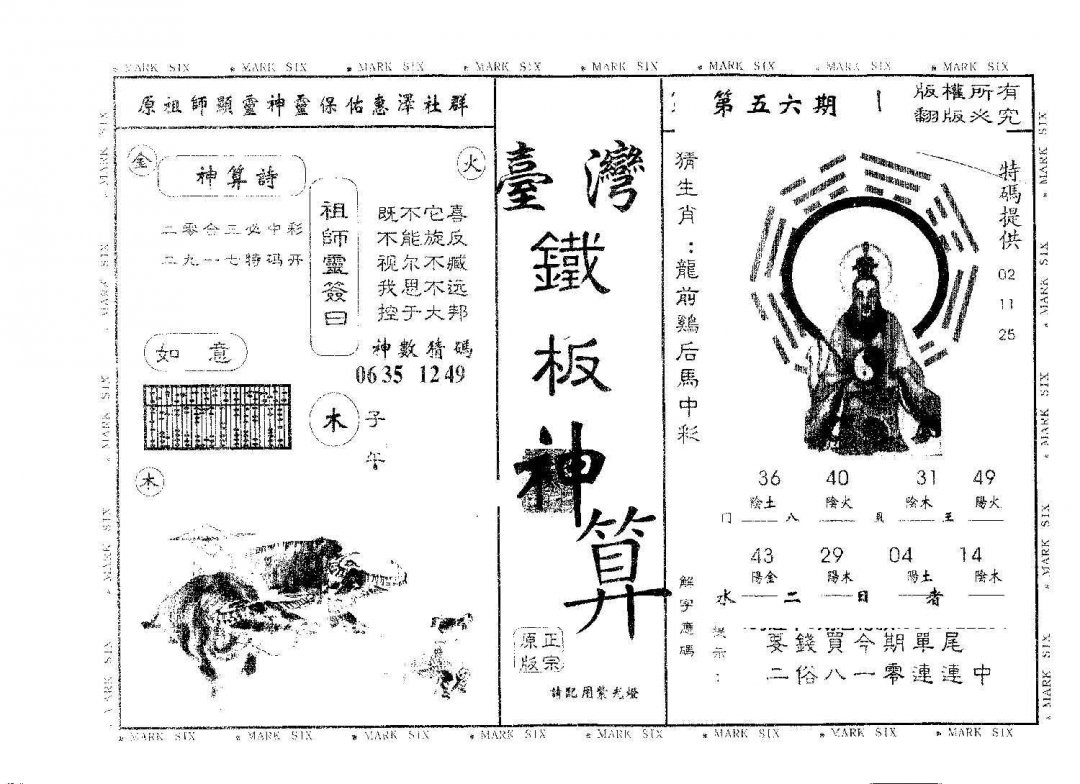 MARK SIX MARK SIX MARK SIX MARK SIX MARK SIX MARK SIX MARK SIX MARK SIX
原祖師顯靈神靈保佑惠澤社群
金
神算詩
火
二零合三必中彩
二九一七特码开
祖師靈簽曰
既不它喜
不能旋反
视尔不臧
我思不远
控于大邦
神數猜碼
06 35 12 49
如意
木
子
午
木
臺灣
鐵板神算
正宗原版
請配用紫光燈
第五六期
版權所有
翻版必究
猜生肖:龍前鷄后馬中彩
特碼提供
02
11
25
36 40 31 49
陰土 陰火 陰木 陽火
门 八 貝 王
43 29 04 14
陽金 陽木 陽土 陰木
水 二 日 者
解字應碼
提示:
要錢買今期單尾
二俗八一零連連中
MARK SIX MARK SIX MARK SIX MARK SIX MARK SIX MARK SIX MARK SIX MARK SIX
MARK SIX MARK SIX MARK SIX MARK SIX MARK SIX
MARK SIX MARK SIX MARK SIX MARK SIX MARK SIX